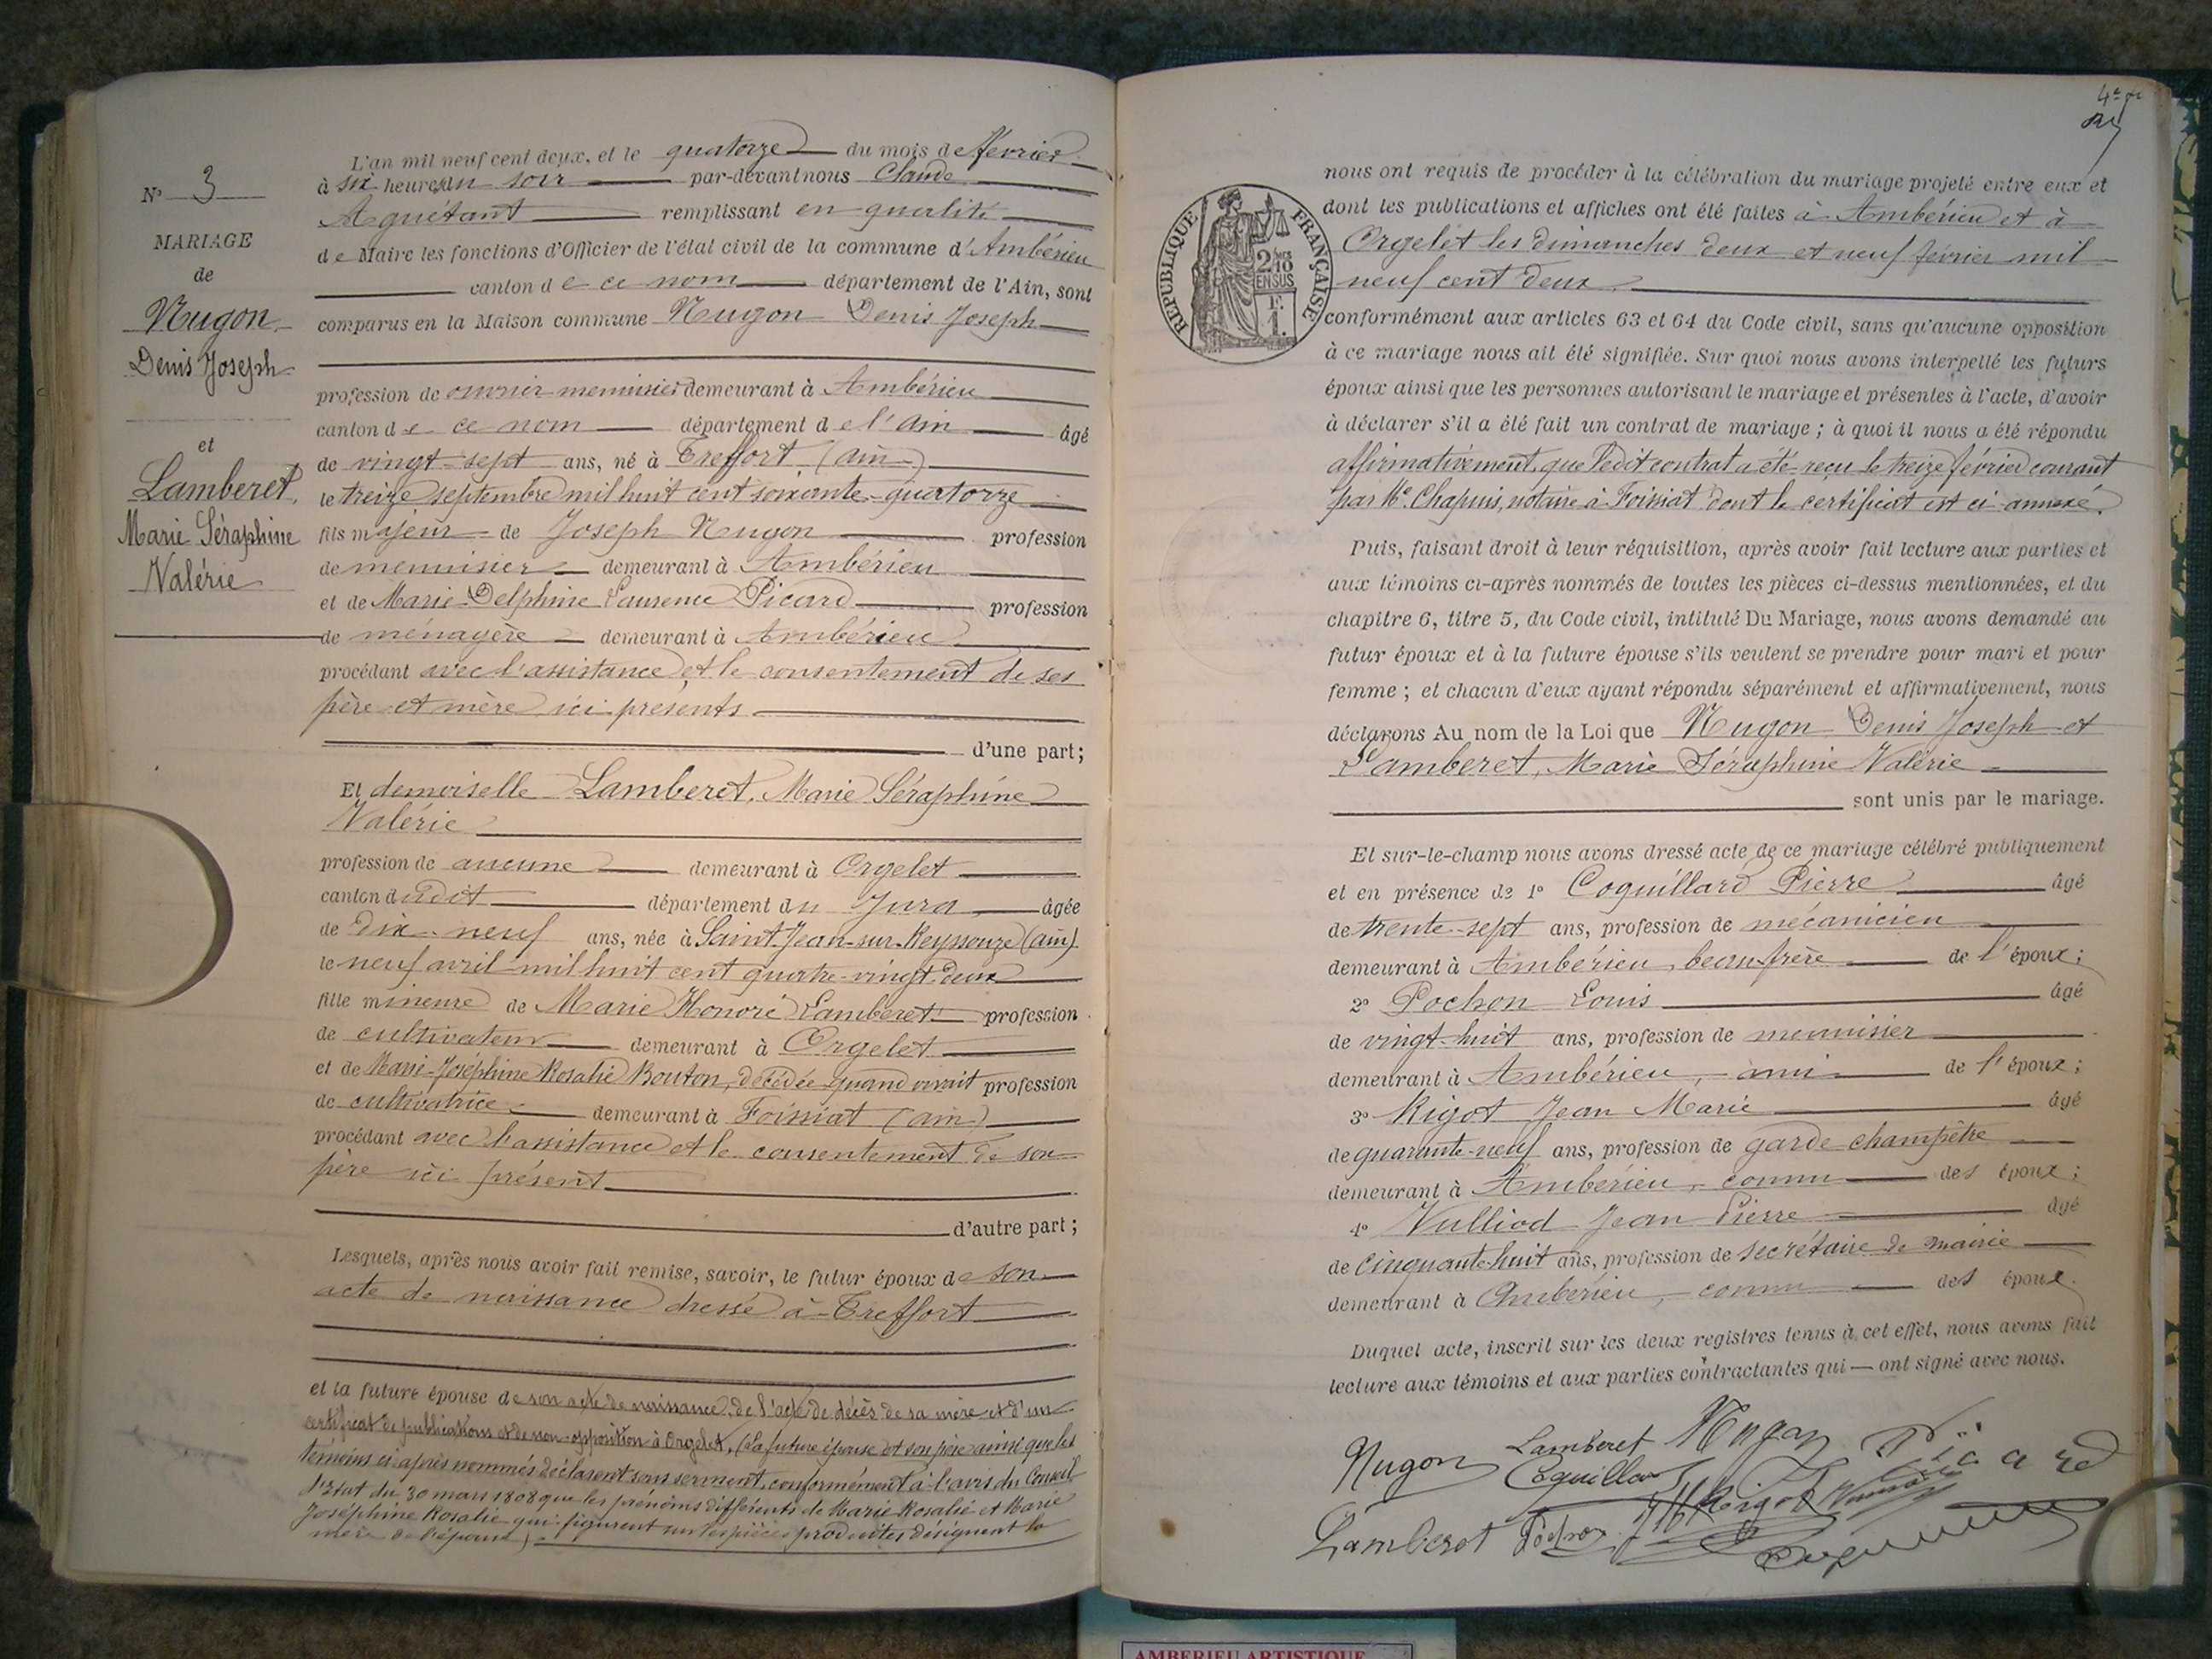 N° 3
MARIAGE
de
Nugon
Denis Joseph
et
Lamberet,
Marie Séraphine
Valérie
L'an mil neuf cent deux, et le quatorze du mois de février
à six heures du soir par-devant nous Claude
Aguétant remplissant en qualité
de Maire les fonctions d'Officier de l'état civil de la commune d'Ambérieu
canton de ce nom département de l'Ain, sont
comparus en la Maison commune Nugon Denis Joseph
profession de ouvrier menuisier demeurant à Ambérieu
canton de ce nom département de l'Ain âgé
de vingt-sept ans, né à Treffort (Ain)
le treize septembre mil huit cent soixante-quatorze
fils majeur de Joseph Nugon profession
de menuisier demeurant à Ambérieu
et de Marie-Delphine Laurence Picard profession
de ménagère demeurant à Ambérieu
procédant avec l'assistance et le consentement de ses
père et mère ici présents
d'une part;
Et demoiselle Lamberet, Marie Séraphine
Valérie
profession de aucune demeurant à Orgelet
canton dudit département du Jura âgée
de dix-neuf ans, née à Saint-Jean-sur-Reyssouze (Ain)
le neuf avril mil huit cent quatre-vingt-deux
fille mineure de Marie Honoré Lamberet profession
de cultivateur demeurant à Orgelet
et de Marie-Joséphine Rosalie Bouton, décédée quand vivait profession
de cultivatrice demeurant à Foissiat (Ain)
procédant avec l'assistance et le consentement de son
père ici présent
d'autre part;
Lesquels, après nous avoir fait remise, savoir, le futur époux de son
acte de naissance dressé à Treffort
et la future épouse de son acte de naissance, de l'acte de décès de sa mère et d'un
certificat de publications et de non-opposition à Orgelet. (La future épouse et son père ainsi que les
témoins ci-après nommés déclarent sous serment, conformément à l'avis du Conseil
d'Etat du 30 mars 1808 que les prénoms différents de Marie Rosalie et Marie
Joséphine Rosalie qui figurent sur les pièces produites désignent la
mère de l'épouse).
REPUBLIQUE FRANÇAISE
2/10 EN SUS
1F.
nous ont requis de procéder à la célébration du mariage projeté entre eux et
dont les publications et affiches ont été faites à Ambérieu et à
Orgelet les dimanches deux et neuf février mil
neuf cent deux
conformément aux articles 63 et 64 du Code civil, sans qu'aucune opposition
à ce mariage nous ait été signifiée. Sur quoi nous avons interpellé les futurs
époux ainsi que les personnes autorisant le mariage et présentes à l'acte, d'avoir
à déclarer s'il a été fait un contrat de mariage; à quoi il nous a été répondu
affirmativement, que ledit contrat a été reçu le treize février courant
par Me Chapuis, notaire à Foissiat dont le certificat est ci-annexé.
Puis, faisant droit à leur réquisition, après avoir fait lecture aux parties et
aux témoins ci-après nommés de toutes les pièces ci-dessus mentionnées, et du
chapitre 6, titre 5, du Code civil, intitulé Du Mariage, nous avons demandé au
futur époux et à la future épouse s'ils veulent se prendre pour mari et pour
femme; et chacun d'eux ayant répondu séparément et affirmativement, nous
déclarons Au nom de la Loi que Nugon Denis Joseph et
Lamberet, Marie Séraphine Valérie
sont unis par le mariage.
Et sur-le-champ nous avons dressé acte de ce mariage célébré publiquement
et en présence de 1° Coquillard Pierre âgé
de trente-sept ans, profession de mécanicien
demeurant à Ambérieu, beau-frère de l'époux;
2° Pochon Louis âgé
de vingt-huit ans, profession de menuisier
demeurant à Ambérieu, ami de l'époux;
3° Rigot Jean Marie âgé
de quarante-neuf ans, profession de garde champêtre
demeurant à Ambérieu, connu des époux;
4° Vulliod Jean Pierre âgé
de cinquante-huit ans, profession de secrétaire de mairie
demeurant à Ambérieu, connu des époux.
Duquel acte, inscrit sur les deux registres tenus à cet effet, nous avons fait
lecture aux témoins et aux parties contractantes qui — ont signé avec nous.
Nugon Lamberet Nugon Picard
Coquillard
Lamberet Pochon Rigot
AMBERIEU ARTISTIQUE